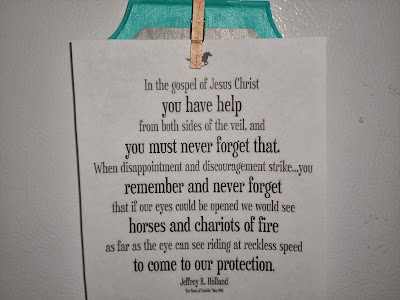 In the gospel of Jesus Christ
you have help
from both sides of the veil, and
you must never forget that.
When disappointment and discouragement strike...you
remember and never forget
that if our eyes could be opened we would see
horses and chariots of fire
as far as the eye can see riding at reckless speed
to come to our protection.
Jeffrey R. Holland